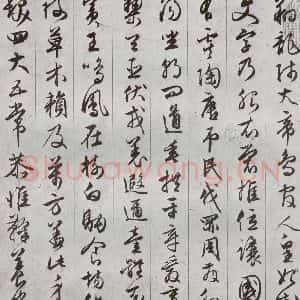 翔龍師火帝鳥官人皇始
文字乃服衣裳推位讓國
有虞陶唐弔民伐罪周發殷
湯坐朝問道垂拱平章愛
黎首臣伏戎羌遐邇壹體
歸王鳴鳳在白駒食場
被草木賴及萬方蓋此身
髮四大五常恭惟鞠養豈
Shufawang.CN